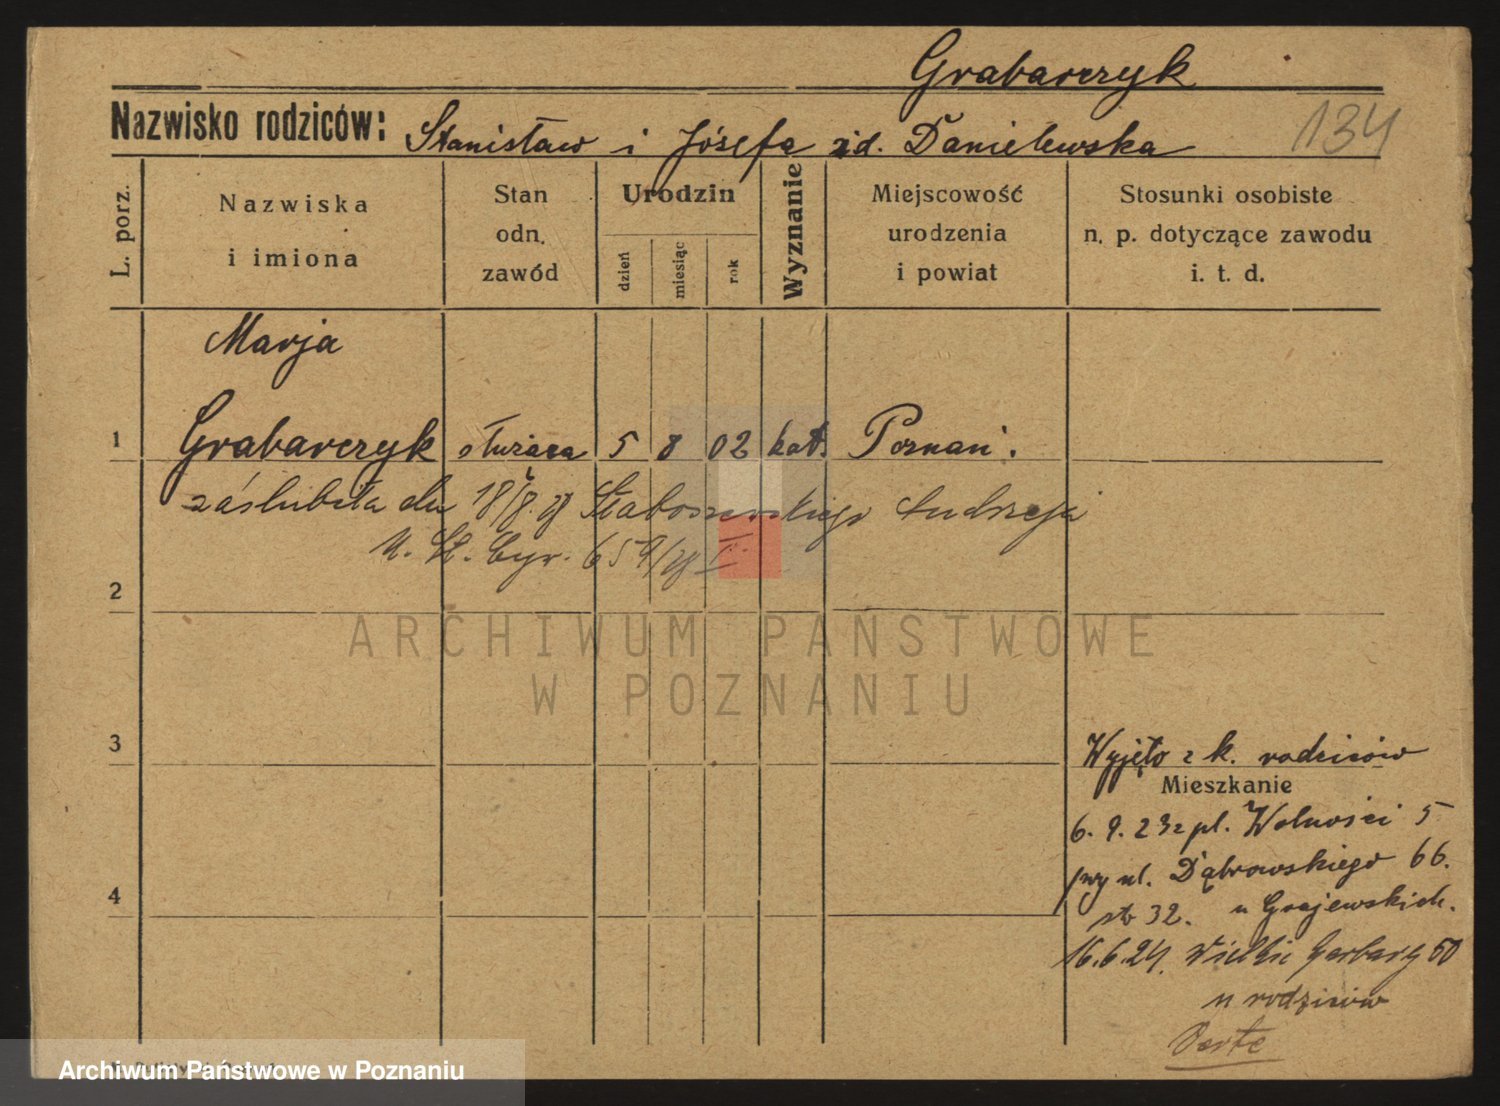 Grabarczyk
Nazwisko rodziców: Stanisław i Józefa zd. Danielewska
134
L. porz.
Nazwiska
i imiona
Stan
odn.
zawód
Urodzin
dzień
miesiąc
rok
Wyznanie
Miejscowość
urodzenia
i powiat
Stosunki osobiste
n. p. dotyczące zawodu
i. t. d.
Marja
1 Grabarczyk służąca 5 8 02 kat. Poznań.
zaślubiła dn 18/8.28 Staboszewskiego Andrzeja
U. St. Cyw. 659/28 I
2
ARCHIWUM PAŃSTWOWE
W POZNANIU
3
Wyjęto z k. rodziców
Mieszkanie
6. 9. 23 z pl. Wolności 5
ul. Dąbrowskiego 66.
4
32. u Grajewskich.
16.6.24. Wielkie Garbary 50
u rodziców
Archiwum Państwowe w Poznaniu